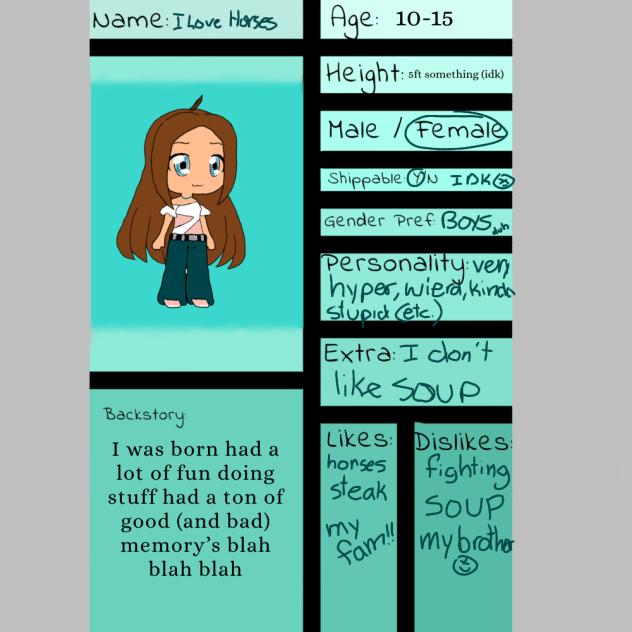 Name: I Love Horses
Age: 10-15
Height: 5ft something (idk)
Male / Female
Shippable: Y N IDK
Gender Pref: BOYS duh
Personality: very
hyper, wierd, kinda
stupid (etc.)
Extra: I don't
like SOUP
Backstory:
I was born had a
lot of fun doing
stuff had a ton of
good (and bad)
memory's blah
blah blah
Likes:
horses
steak
my
fam!!
Dislikes:
fighting
SOUP
my brother